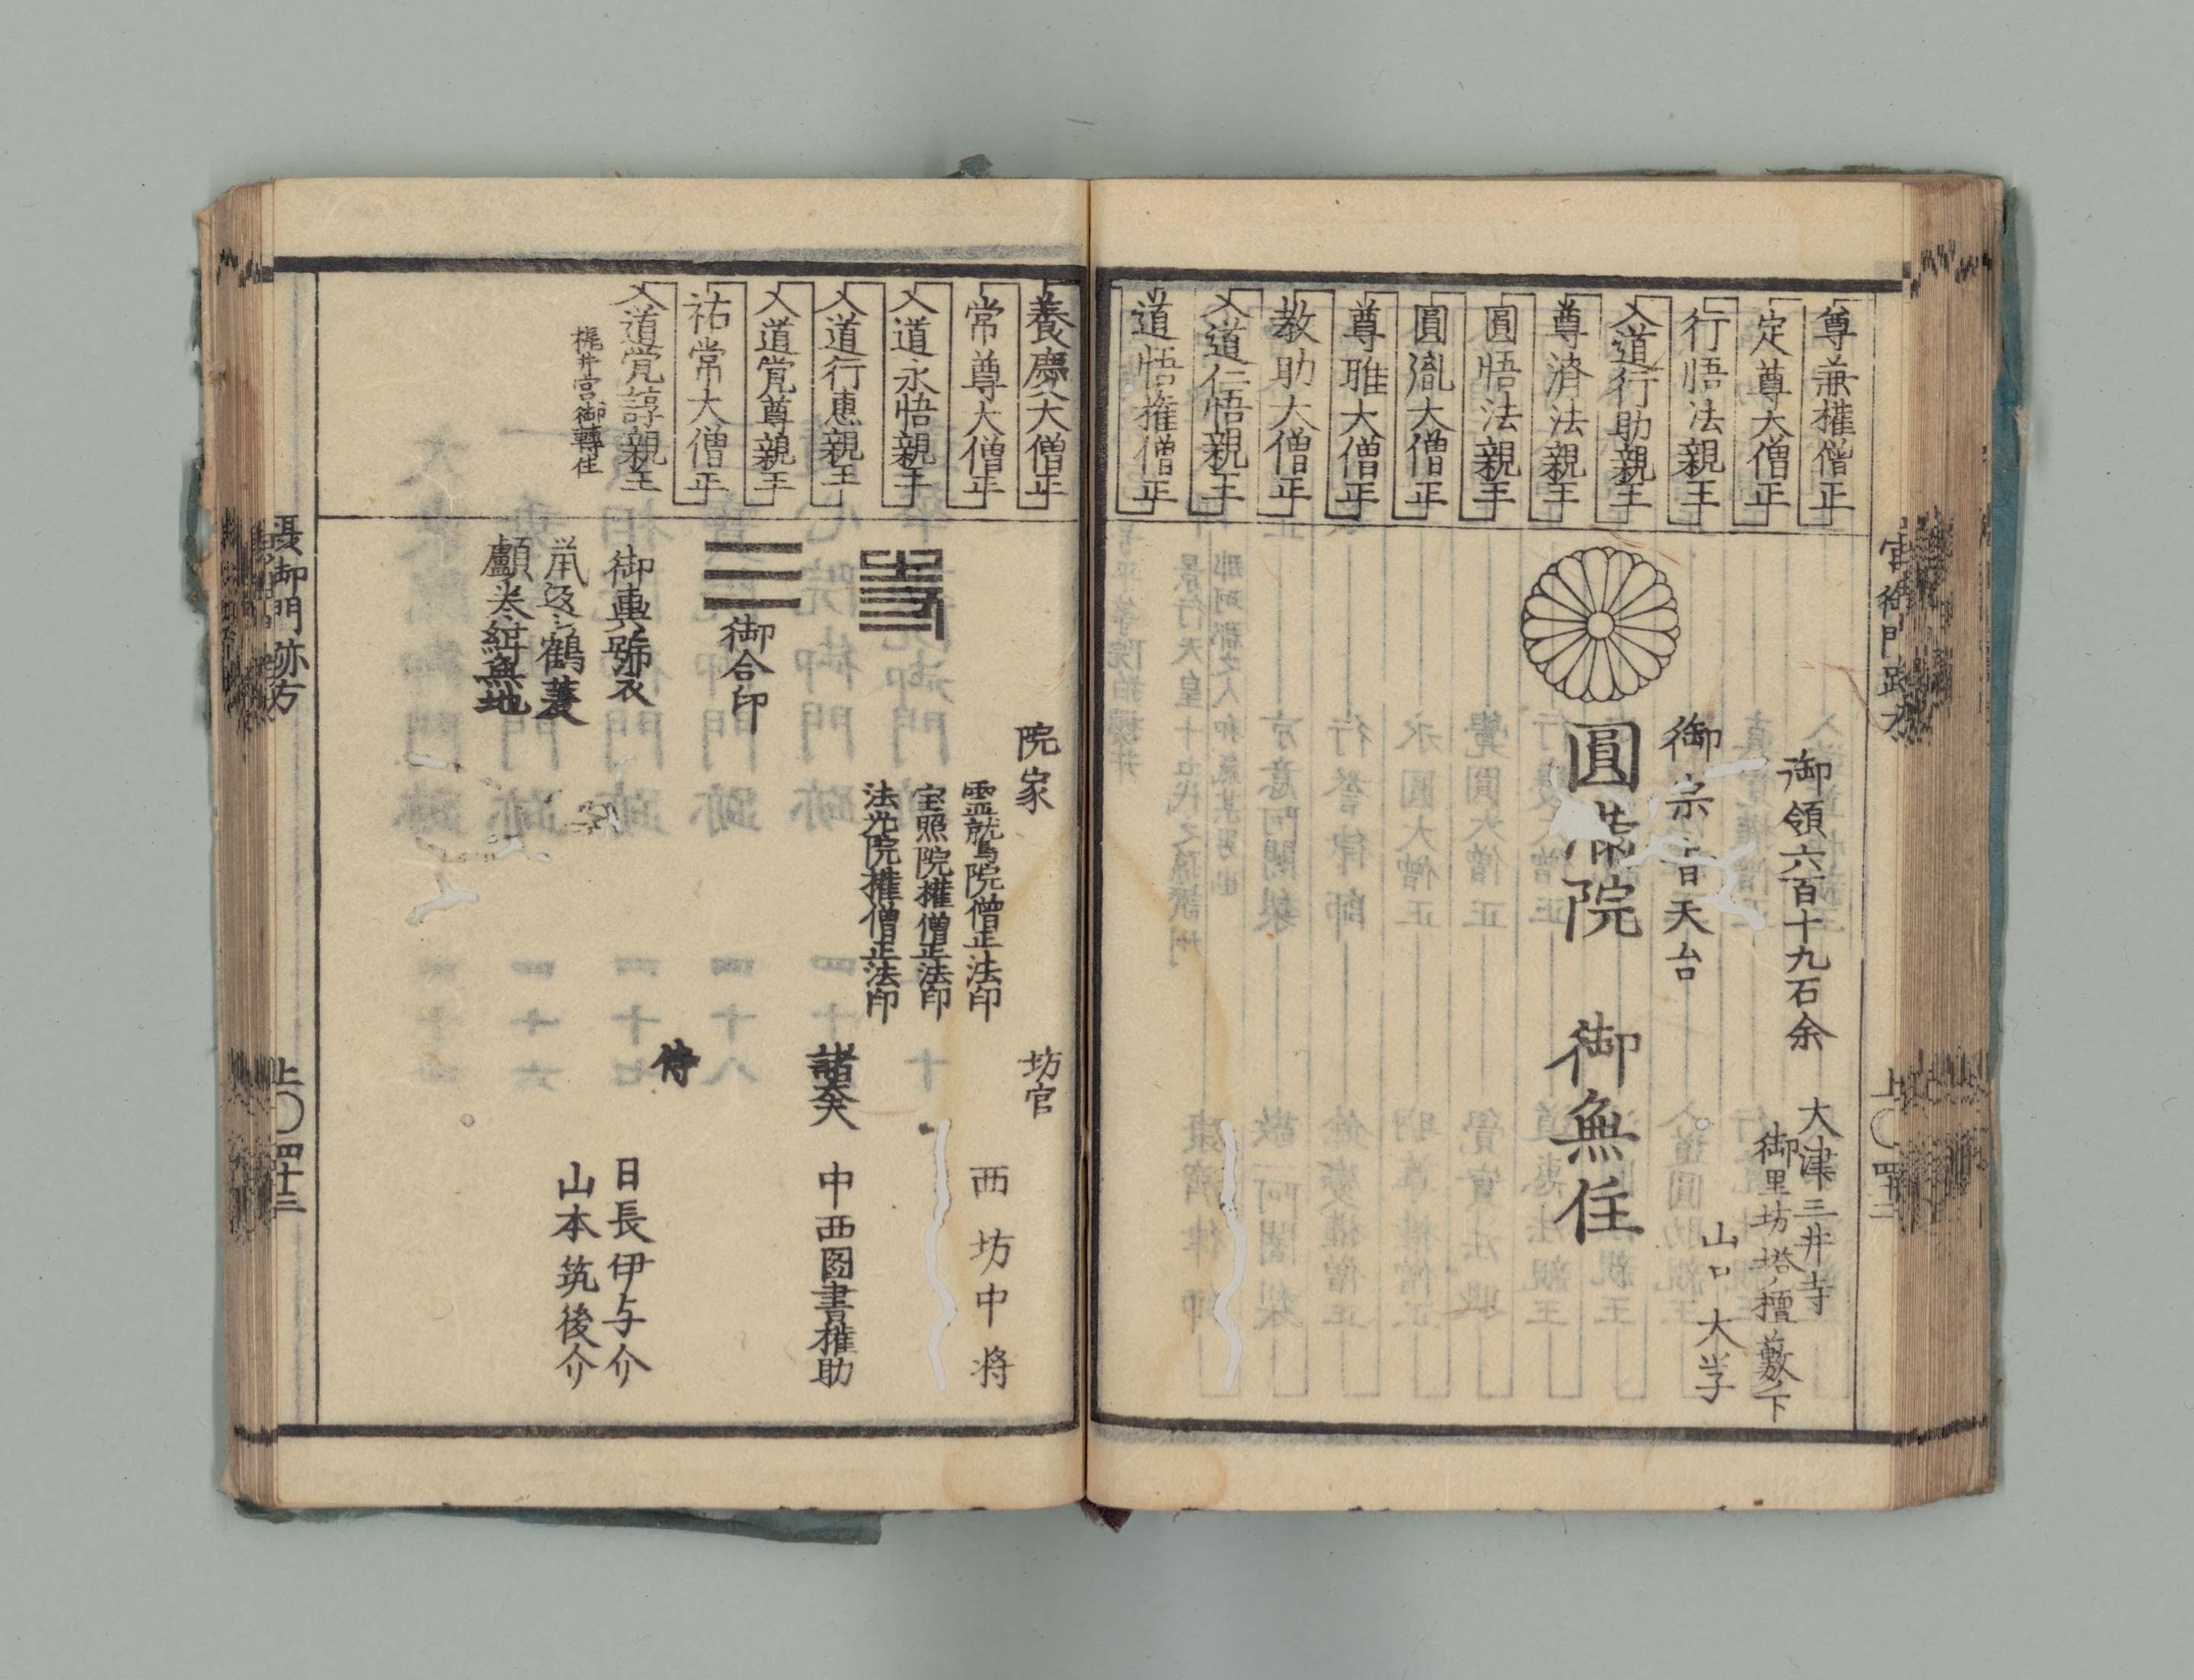 尊兼權僧正
定尊大僧正
行悟法親王
入道行助親王
尊済法親王
圓悟法親王
圓胤大僧正
尊雅大僧正
教助大僧正
入道仁悟親王
道悟権僧正
御領六百十九石余
大津三井寺
御里坊塔ノ檀藪ノ下
山口大学
御宗旨天台
圓満院 御無住
上〇四十三
養慶大僧正
常尊大僧正
入道永悟親王
入道行恵親王
入道覚尊親王
祐常大僧正
入道覚諄親王
梶井宮御轉住
院家
霊鷲院僧正法印
宝照院権僧正法印
法光院権僧正法印
坊官
西坊中将
諸大夫
中西図書権助
侍
日長伊与介
山本筑後介
御合印
御輿舁衣
御門跡方
上〇四十三